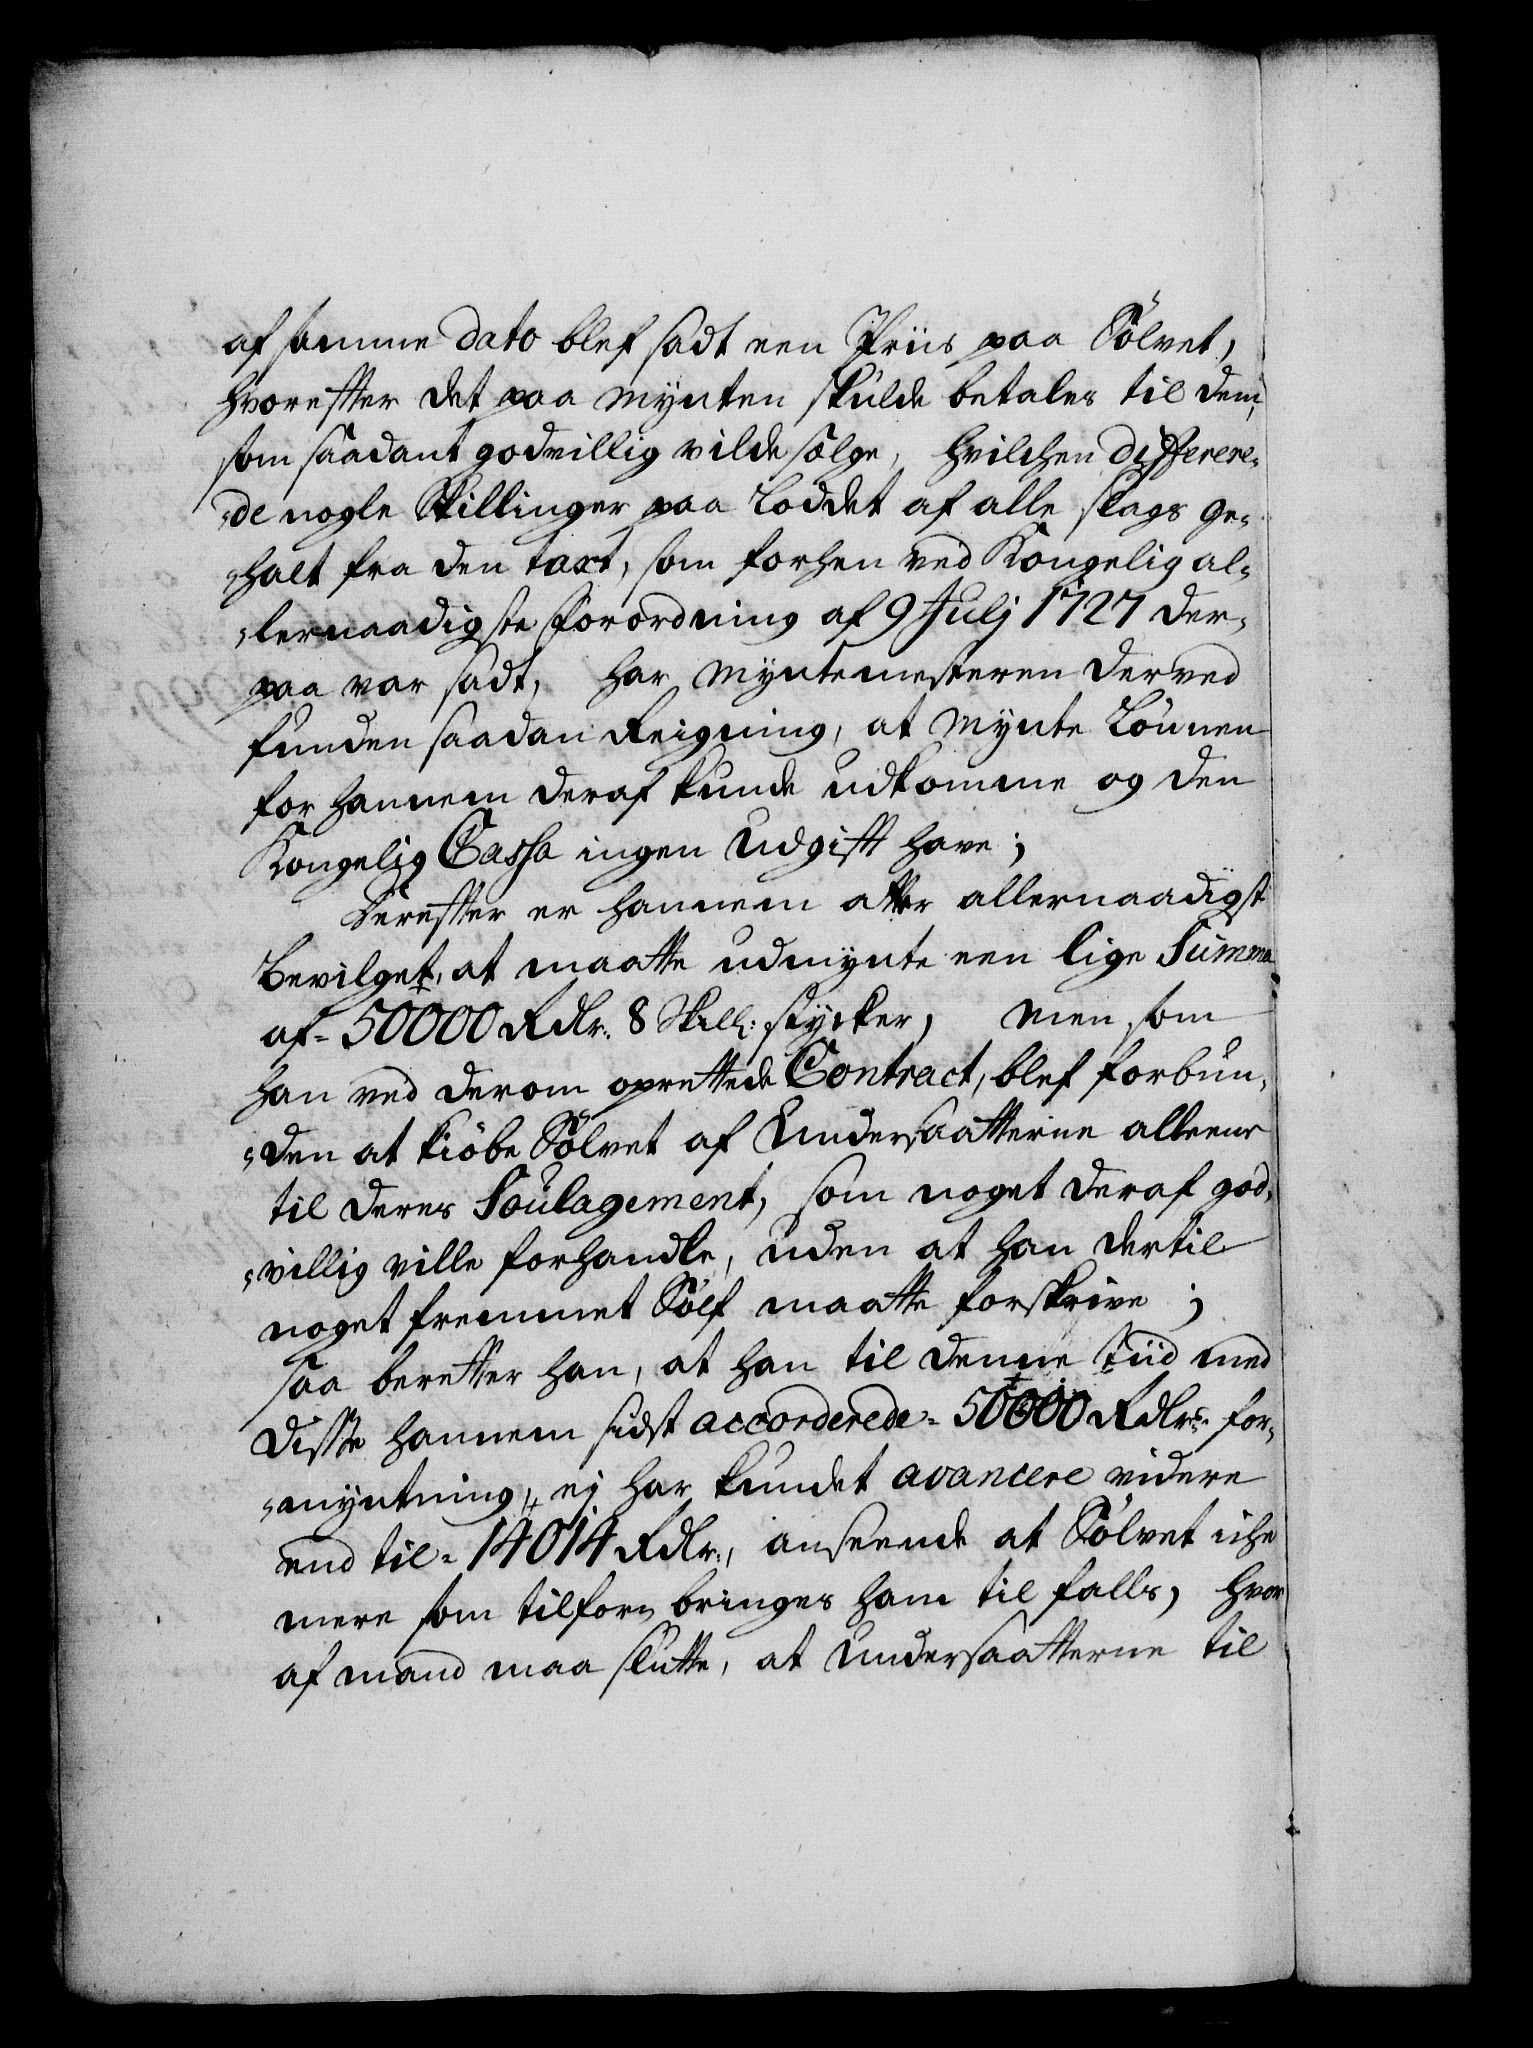 af samme dato blef sadt een Priis paa Sölvet,
hvorefter det paa Mynten skulde betales til dem,
som saadant godvillig vilde sælge, hvilchen differere-
-de nogle Skillinger paa Loddet af alle slags ge-
-halt fra den taxt, som forhen ved Kongelig al-
-lernaadigste Forordning af 9 Julj 1727 der-
paa var sadt, har Myntemesteren derved
funden saadan Reigning, at Mynte Lönnen
for hannem deraf kunde udkomme og den
Kongelig Cassa ingen Udgift have;
Derefter er hannem atter allernaadigst
bevilget, at maatte udmynte een lige Summa
af = 50000 Rdlr. 8 Skill: stycker, men som
han ved derom oprettede Contract, blef forbun-
-den at kiöbe Sölvet af Undersaatterne alleene
til deres Soulagement, som noget deraf god-
-villig ville forhandle, uden at han dertil
noget fremmet Sölf maatte forskrive;
saa beretter han, at han til denne tiid med
disse hannem sidst accorderede = 50000 Rdlrs for-
-myntning, ej har kundet avancere videre
end til = 14014 Rdlr., anseende at Sölvet iche
mere som tilforn bringes ham til falls, hvor
af mand maa slutte, at Undersaatterne til